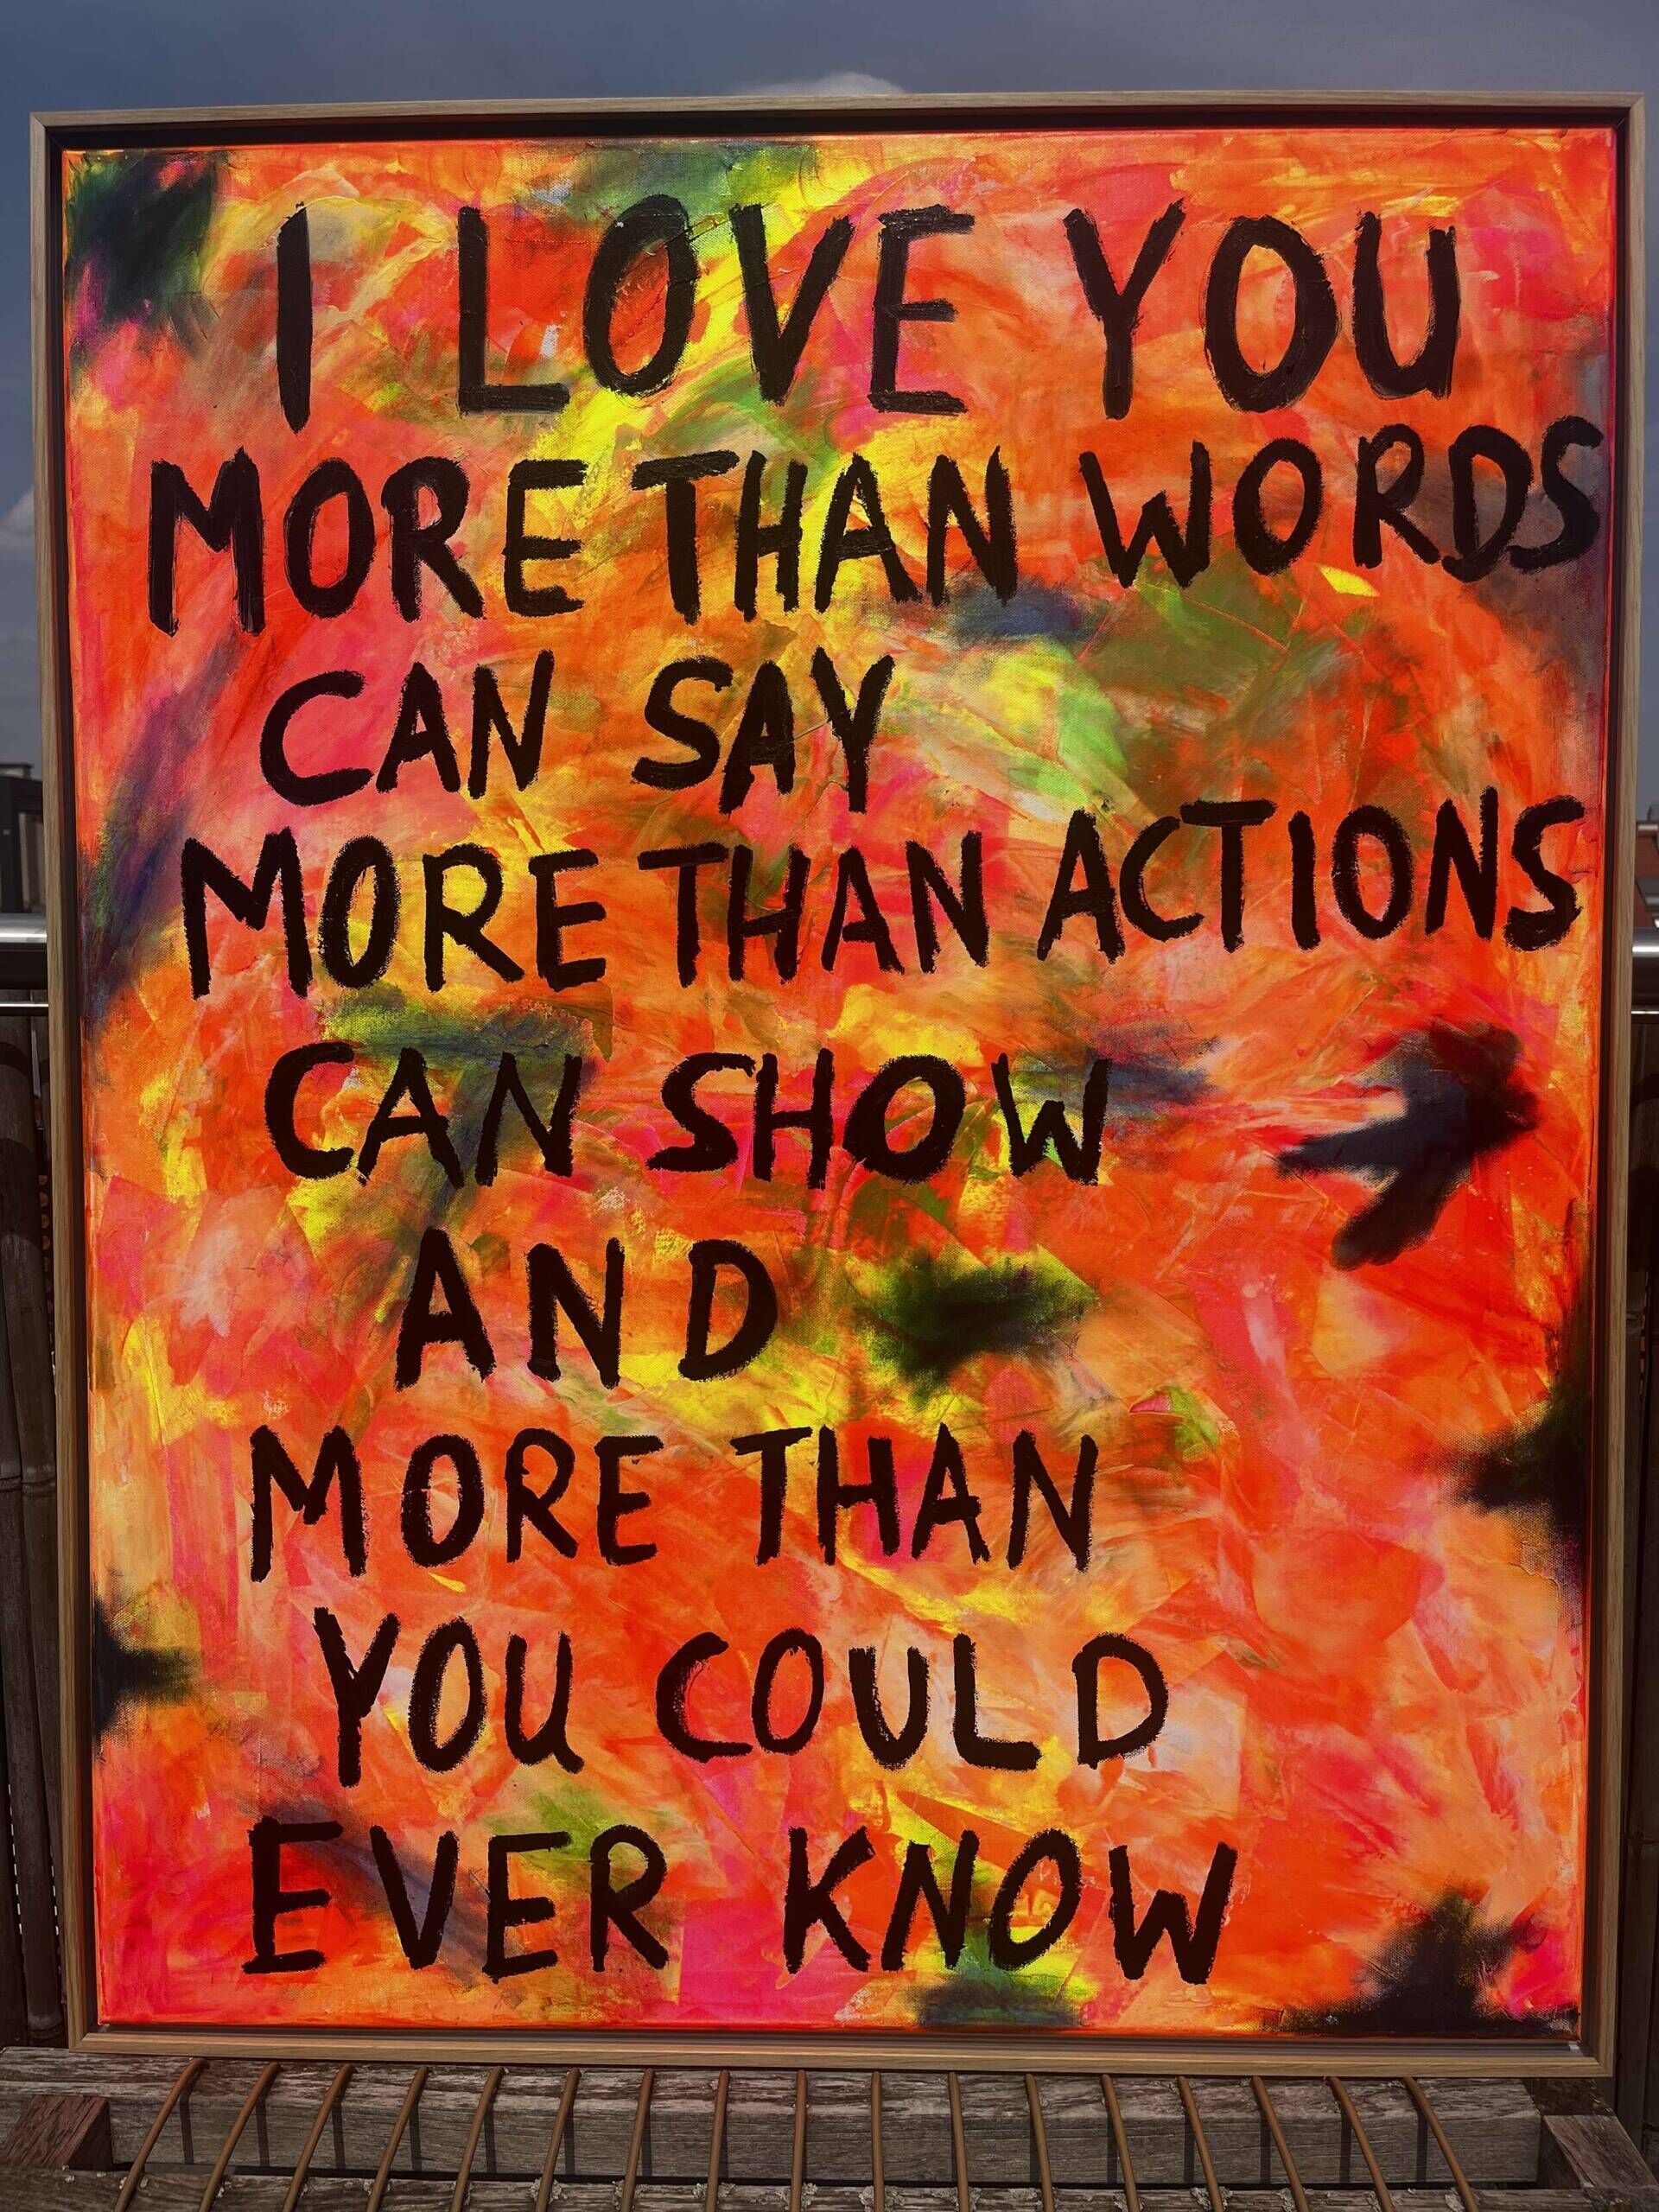 I LOVE YOU
MORE THAN WORDS
CAN SAY
MORE THAN ACTIONS
CAN SHOW
AND
MORE THAN
YOU COULD
EVER KNOW